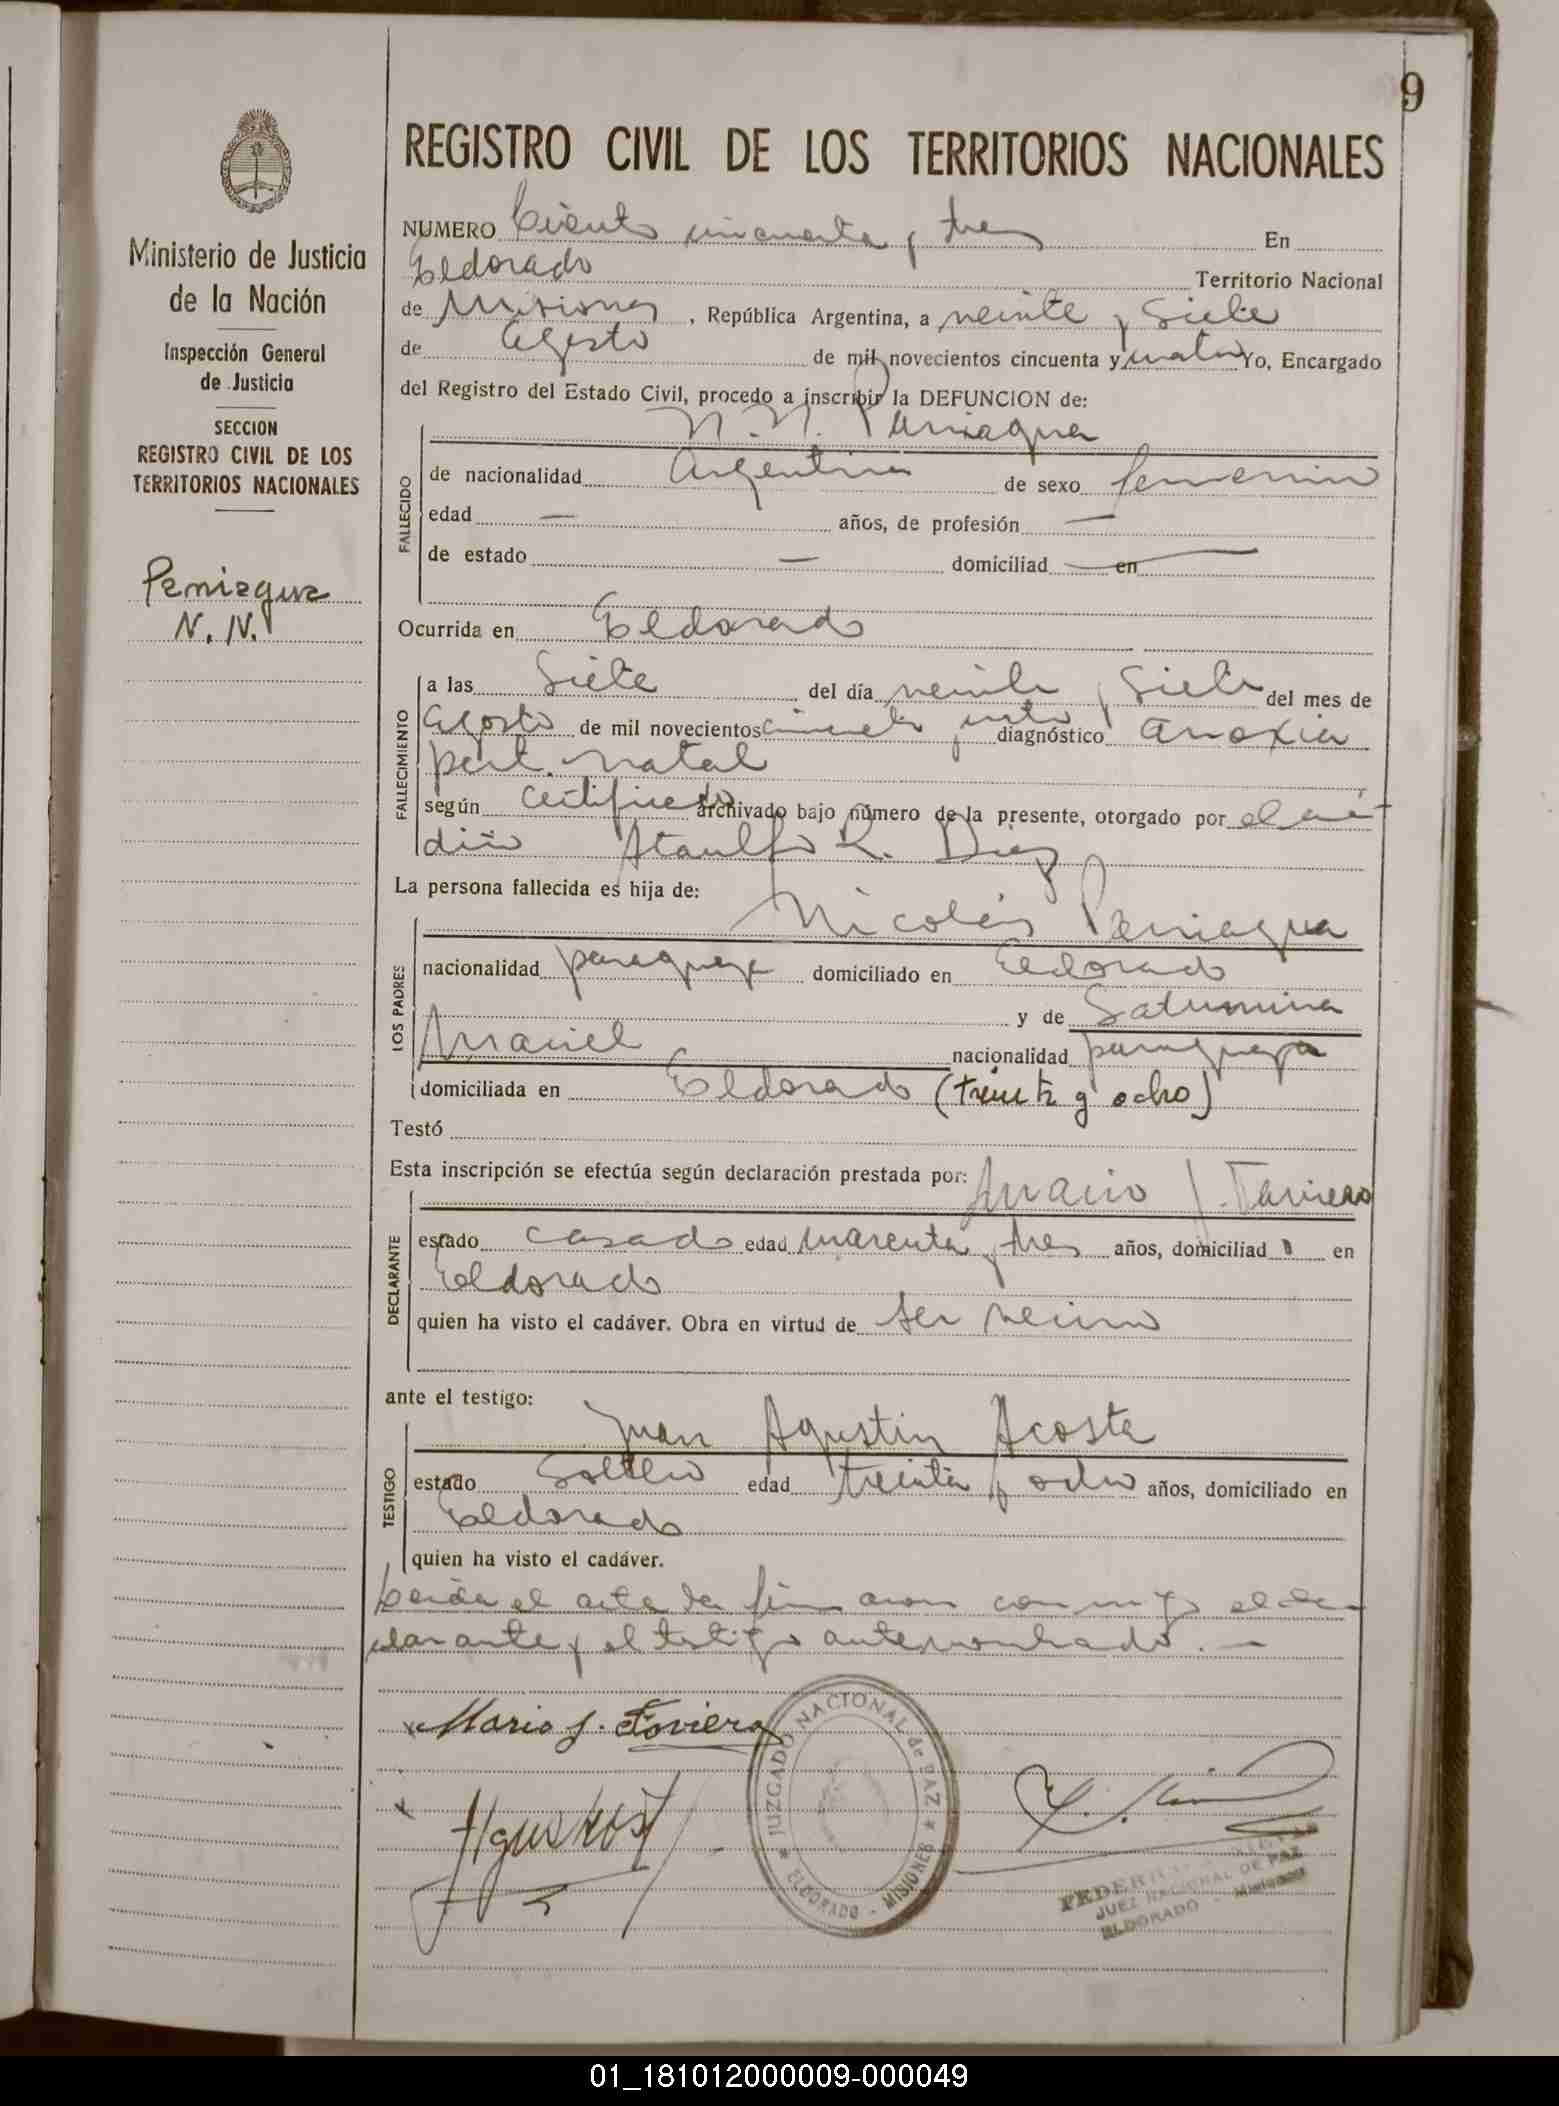 9
Ministerio de Justicia
de la Nación
Inspección General
de Justicia
SECCION
REGISTRO CIVIL DE LOS
TERRITORIOS NACIONALES
Peniagua
N. N.
REGISTRO CIVIL DE LOS TERRITORIOS NACIONALES
NUMERO Ciento cincuenta y tres En
Eldorado Territorio Nacional
de Misiones, República Argentina, a veinte y siete
de Agosto de mil novecientos cincuenta y cuatro Yo, Encargado
del Registro del Estado Civil, procedo a inscribir la DEFUNCION de:
N. N. Peniagua
FALLECIDO
de nacionalidad Argentina de sexo femenino
edad — años, de profesión —
de estado — domiciliad — en —
Ocurrida en Eldorado
FALLECIMIENTO
a las Siete del día veinte y Siete del mes de
Agosto de mil novecientos cincuenta y cuatro diagnóstico Anoxia
post. natal
según certificado archivado bajo número de la presente, otorgado por el mé-
dico Ataulfo R. Diaz
La persona fallecida es hija de:
Nicolás Peniagua
LOS PADRES
nacionalidad paraguaya domiciliado en Eldorado
y de Saturnina
Maciel nacionalidad paraguaya
domiciliada en Eldorado (treinta y ocho)
Testó
Esta inscripción se efectúa según declaración prestada por: Mario J. Faviero
DECLARANTE
estado casado edad cuarenta y tres años, domiciliado en
Eldorado
quien ha visto el cadáver. Obra en virtud de ser vecino
ante el testigo:
Juan Agustin Acosta
TESTIGO
estado Soltero edad treinta y ocho años, domiciliado en
Eldorado
quien ha visto el cadáver.
Leida el acta la firmaron conmigo el de-
clarante y el testigo antenombrado. —
Mario J. Faviero
JUZGADO NACIONAL de PAZ
ELDORADO - MISIONES
JUEZ NACIONAL DE PAZ
ELDORADO - Misiones
01_181012000009-000049